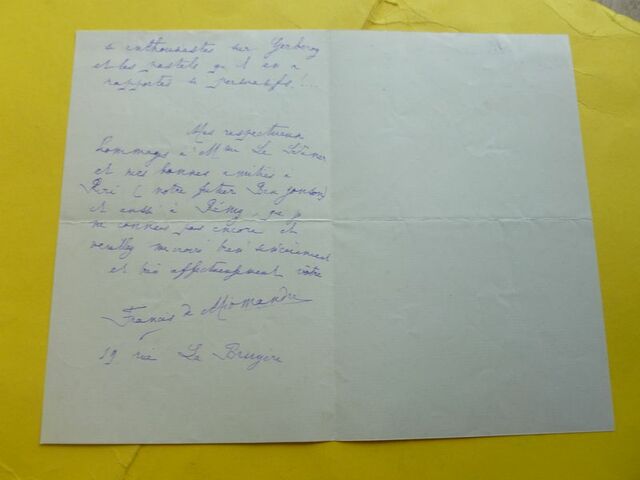 si enthousiastes sur Gerberoy
et les pastels qu'il en a
rapportés si persuasifs !...
Mes respectueux
hommages à Mme Le Sidaner
et mes bonnes amitiés à
(notre futur Ben Jonson)
et aussi à Rémy, que je
ne connais pas encore et
veuillez me croire bien sincèrement
et bien affectueusement vôtre
Francis de Miomandre
19 rue La Bruyère